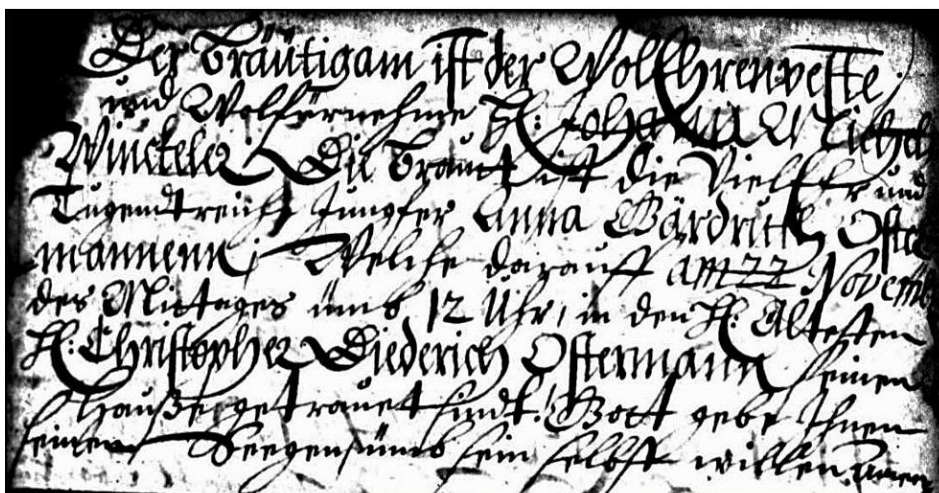 Der Bräutigam ist der WolEhrenveste
und Wolfürnehme H: Johann Michel
Winckeler, Die Braut ist die VielEhr und
Tugendtreiche Jungfer Anna Gärdruth Oster
mannenn, Welche darauff am 22 Novemb
des Mittages umb 12 Uhr, in den H: Ältesten
H: Christopher Diederich Ostermann seinen
Hauße getrauet sindt. Gott gebe Ihnen
seinen Seegen umb sein selbst willen Amen